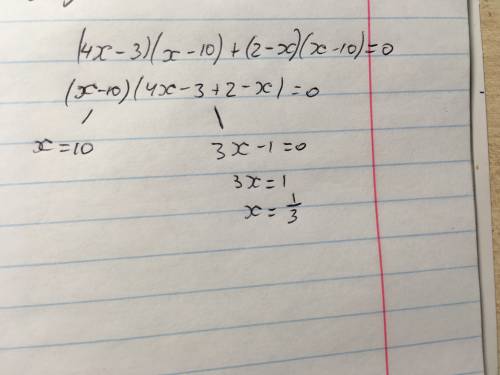 (4x-3)(x-10)+(2-x)(x-10)=0
(x-10)(4x-3+2-x)=0
x=10 3x-1=0
3x=1
x=1/3